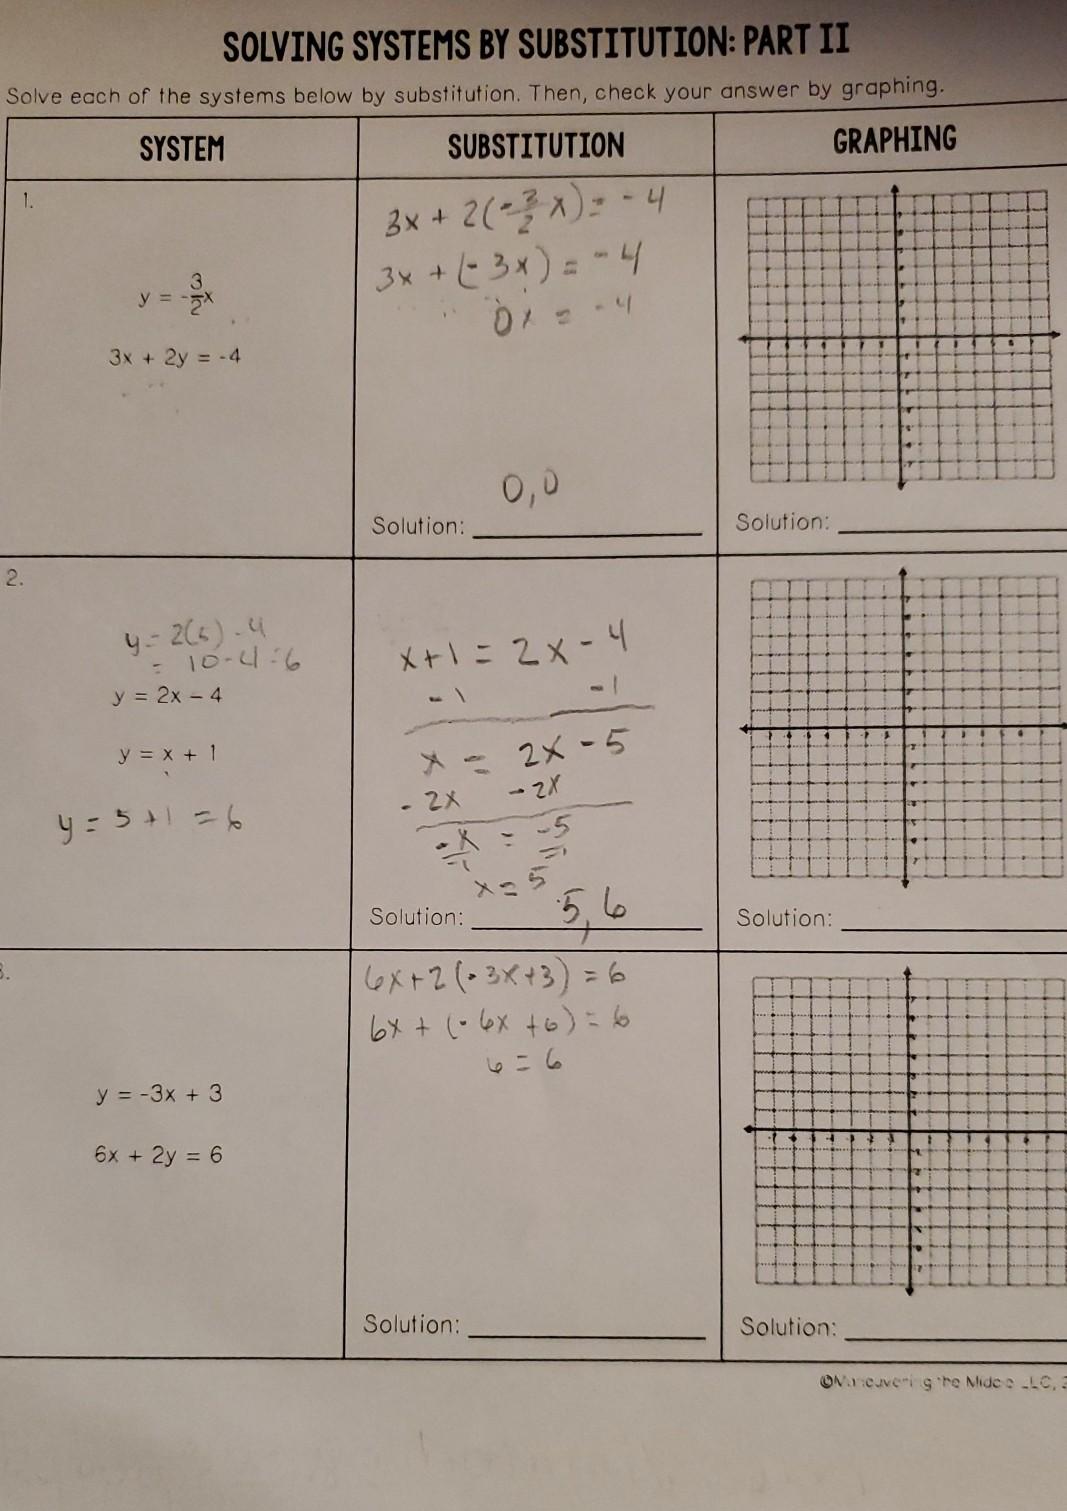 SOLVING SYSTEMS BY SUBSTITUTION: PART II
Solve each of the systems below by substitution. Then, check your answer by graphing.
SYSTEM
SUBSTITUTION
GRAPHING
1.
y = -3/2x
3x + 2y = -4
3x + 2(-3/2 x) = -4
3x + (-3x) = -4
0x = -4
0,0
Solution:
Solution:
2.
y = 2(5) - 4
= 10 - 4 = 6
y = 2x – 4
y = x + 1
y = 5 + 1 = 6
x+1 = 2x - 4
-1 -1
x = 2x - 5
-2x -2x
-x = -5
-1 -1
x = 5
Solution: 5, 6
Solution:
y = -3x + 3
6x + 2y = 6
6x+2(-3x+3) = 6
6x + (-6x +6) = 6
6 = 6
Solution:
Solution:
©Maneuvering the Middle LLC,